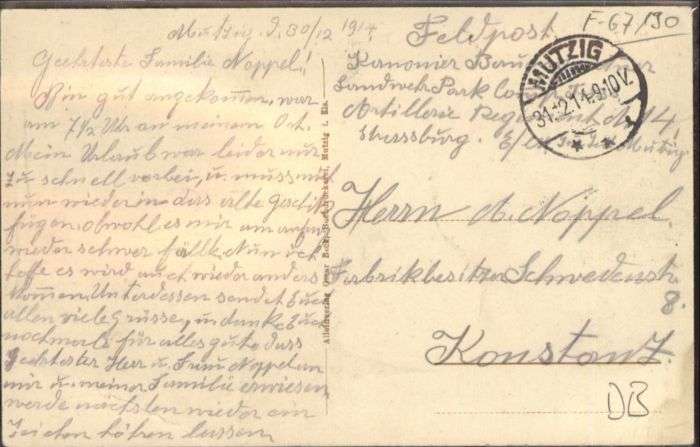 Mutzig. d, 30/12 1914,
Geehrteste Familie Noppel!
Bin gut angekommen, war
am 7½ Uhr an meinem Ort.
Mein Urlaub war leider nur
zu schnell vorbei, u. muss mich
nun wieder in das alte
fügen, obwohl es mir am
wieder schwer fällt. Nun ich
hoffe es wird auch wieder anders
kommen. Unterdessen sendet Euch
allen viele grüsse, u danke Euch
nochmals für alles gute dass
geehrtester Herr u. Frau Noppel an
mir u. meiner Familie erwiesen,
werde nächsten wieder ein
Zeichen hören lassen.
Feldpost
F-67/30
Kanonier
Landwehr Park
Artillerie 14,
Strassburg. Mutzig
MUTZIG
31.12.14.9-10V.
Herrn A. Noppel.
Fabrikbesitzer Schwedenstr
8.
Konstanz.
DB
Mutzig i. Els.